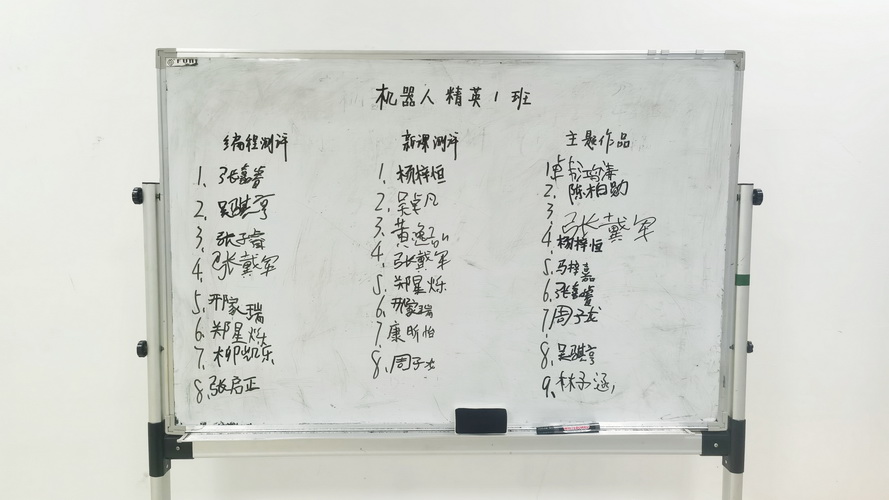 机器人精英1班
编程测评
1、张嘉睿
2、吴骐亨
3、张子睿
4、张戴军
5、邢家瑞
6、郑星烁
7、柳凯乐
8、张启正
新课测评
1、杨梓恒
2、吴卓凡
3、黄逸
4、张戴军
5、郑星烁
6、邢家瑞
7、康昕怡
8、周子龙
主题作品
1、
2、陈柏勋
3、张戴军
4、杨梓恒
5、马梓嘉
6、张嘉睿
7、周子龙
8、吴骐亨
9、林子涵